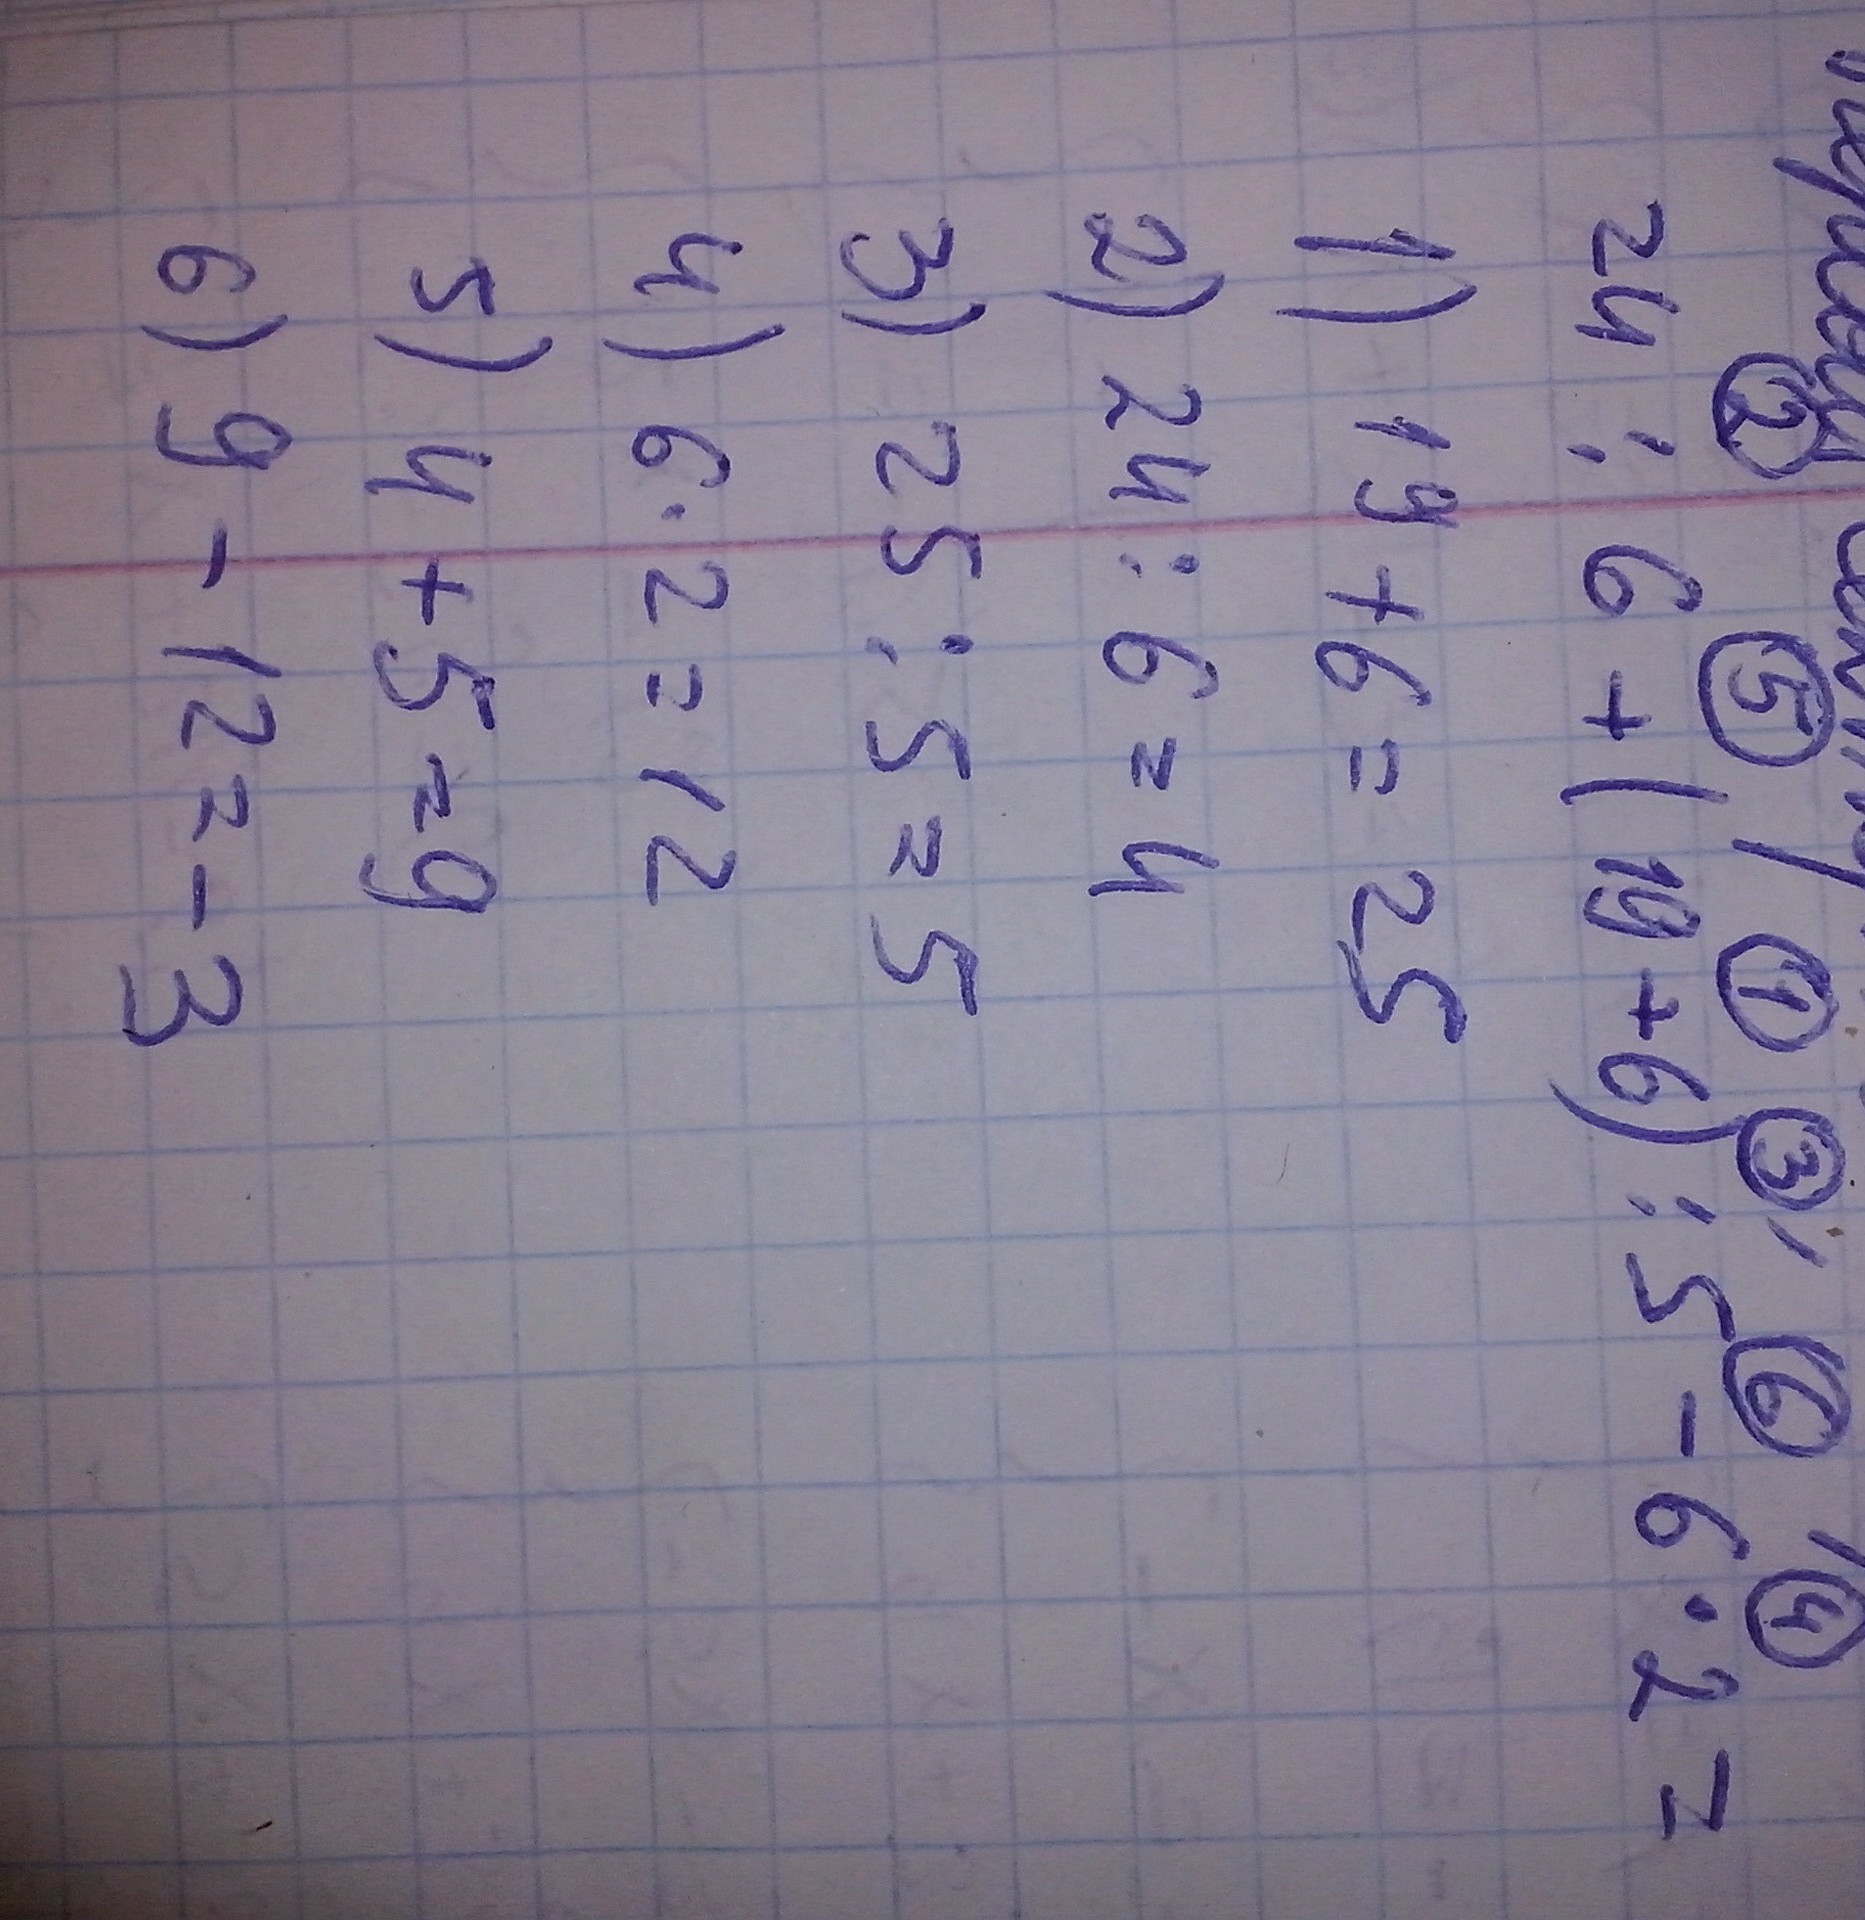 ② ⑤ ① ③ ⑥ ④
24 : 6 + (19 + 6) : 5 - 6 · 2 =
1) 19 + 6 = 25
2) 24 : 6 = 4
3) 25 : 5 = 5
4) 6 · 2 = 12
5) 4 + 5 = 9
6) 9 - 12 = - 3